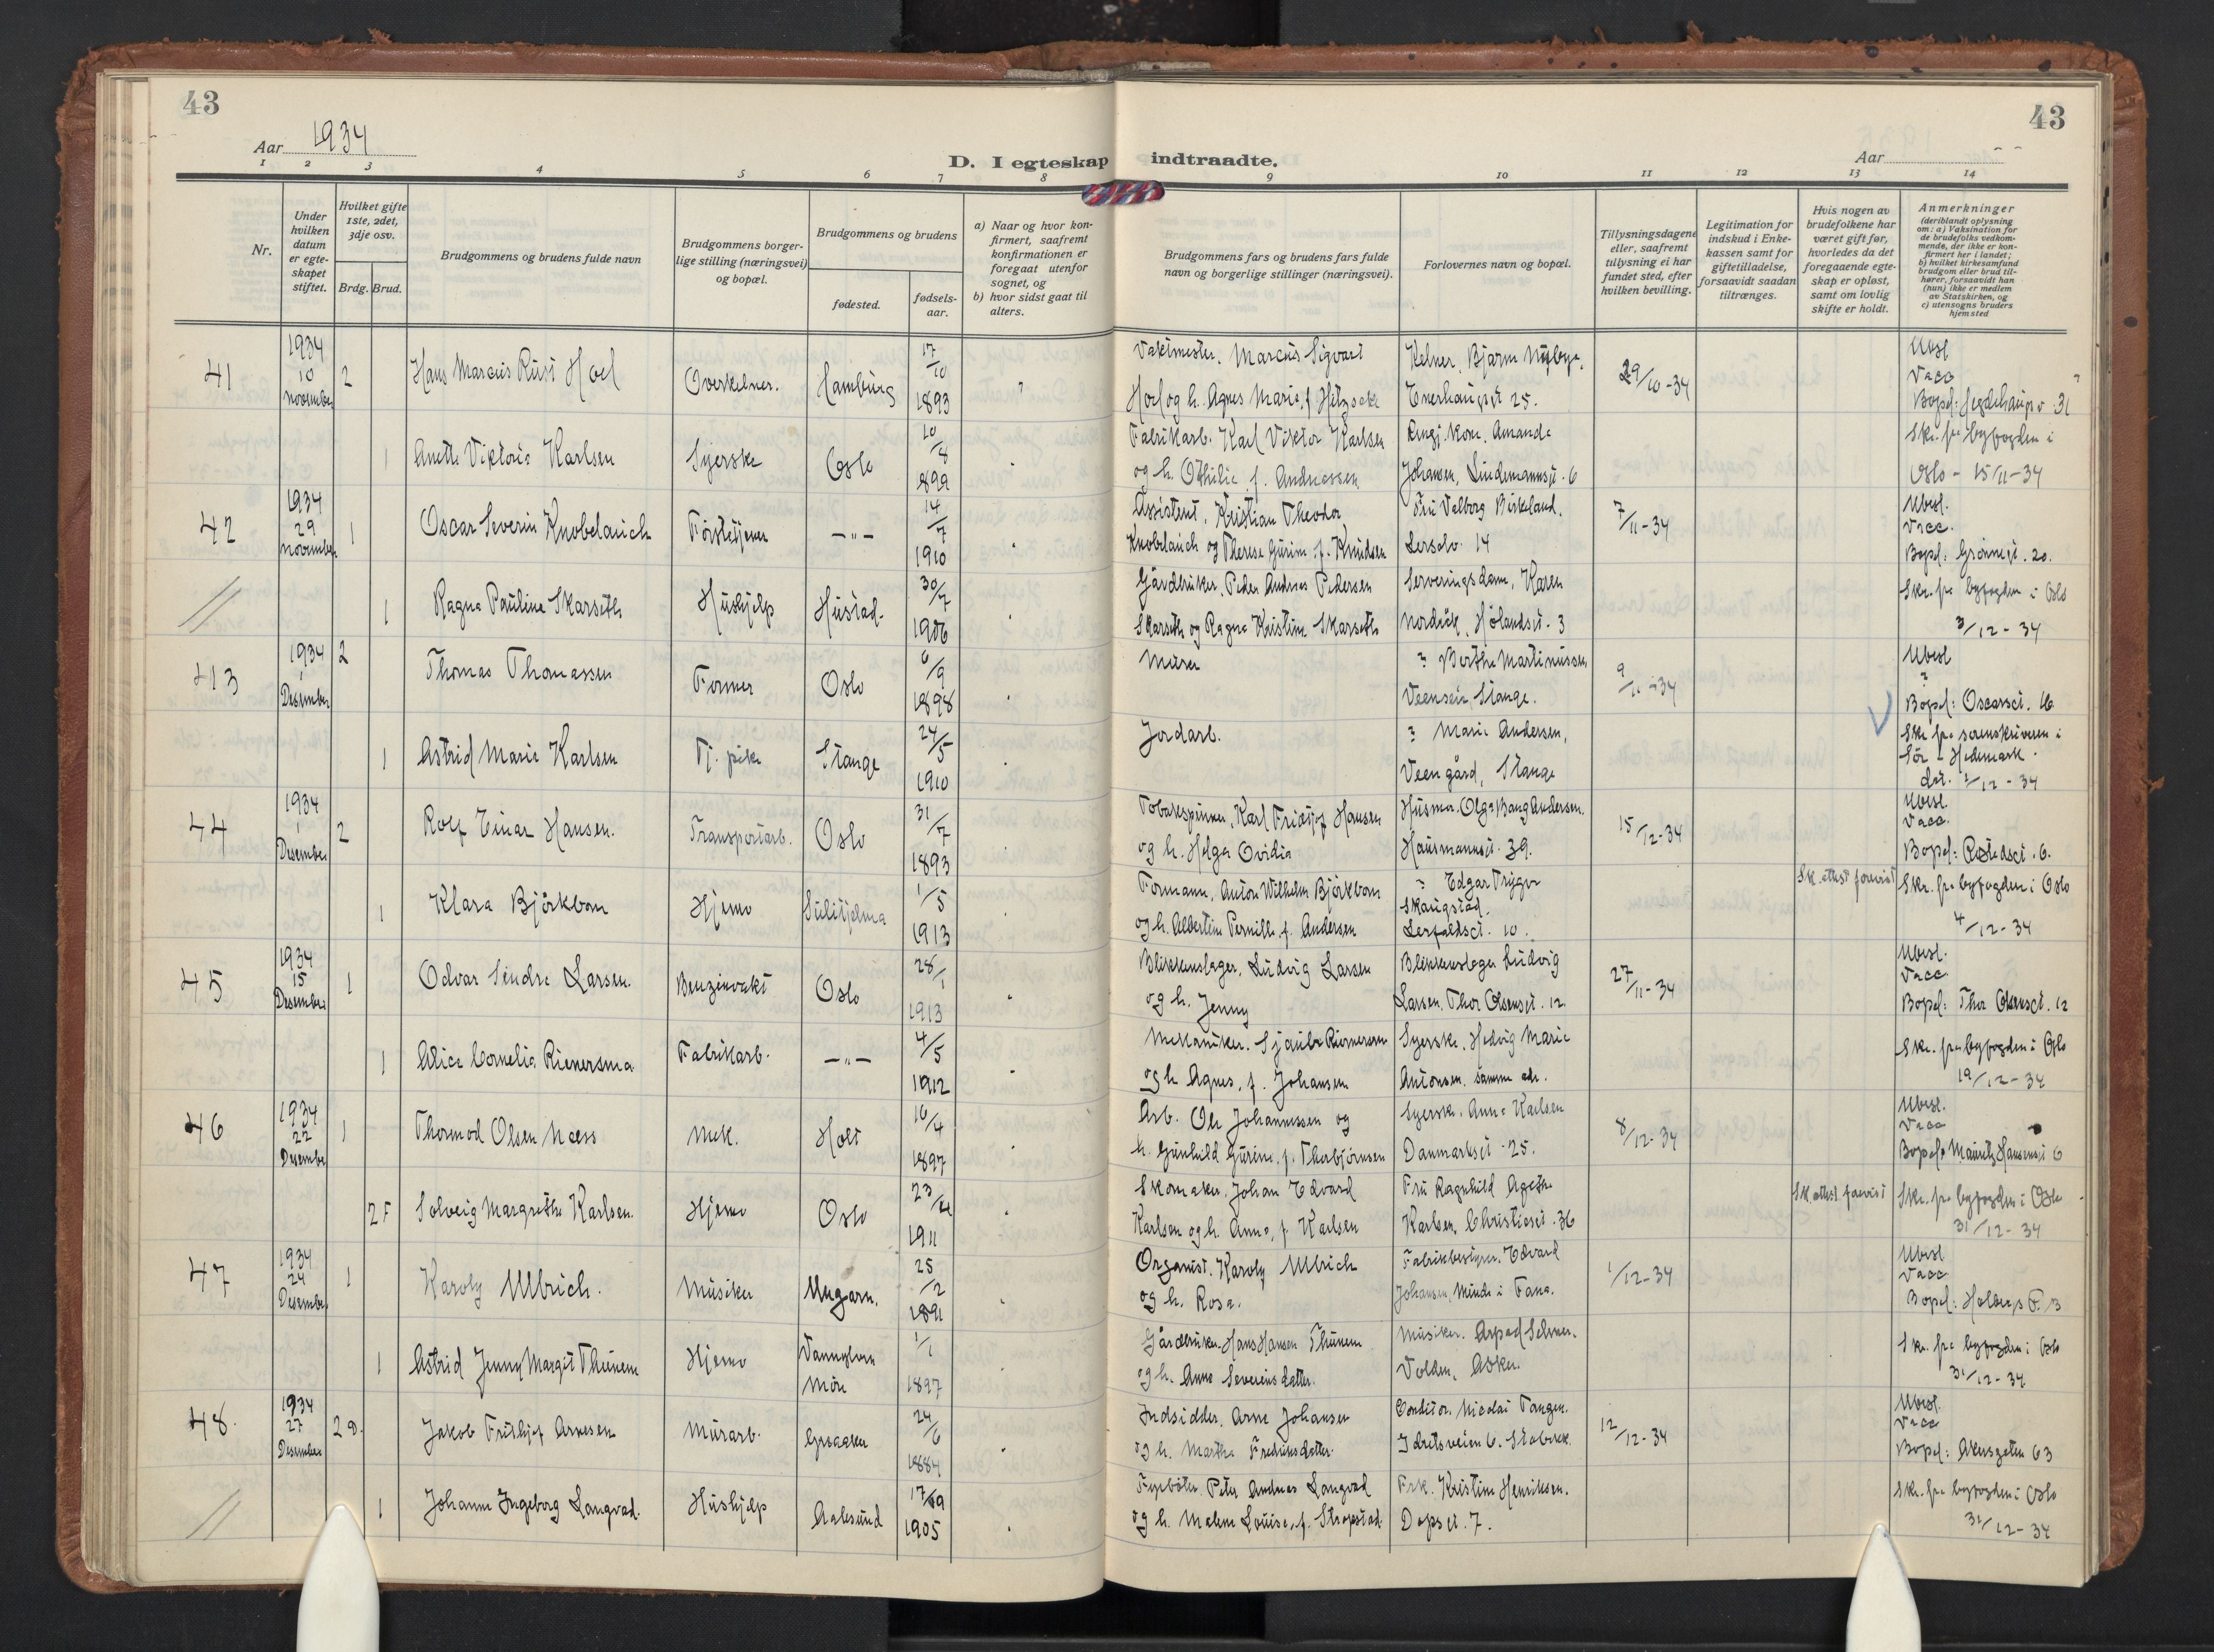 43
43
Aar 1934
D. I egteskap indtraadte.
Aar
1 2 3 4 5 6 7 8 9 10 11 12 13 14
Nr.
Under hvilken datum er egteskapet stiftet.
Hvilket gifte 1ste, 2det, 3dje osv.
Brdg. Brud.
Brudgommens og brudens fulde navn
Brudgommens borgerlige stilling (næringsvei) og bopæl.
Brudgommens og brudens
fødested.
fødselsaar.
a) Naar og hvor konfirmert, saafremt konfirmationen er foregaat utenfor sognet, og
b) hvor sidst gaat til alters.
Brudgommens fars og brudens fars fulde navn og borgerlige stillinger (næringsvei).
Forlovernes navn og bopæl.
Tillysningsdagene eller, saafremt tillysning ei har fundet sted, efter hvilken bevilling.
Legitimation for indskud i Enkekassen samt for giftetilladelse, forsaavidt saadan tiltrænges.
Hvis nogen av brudefolkene har været gift før, hvorledes da det foregaaende egteskap er opløst, samt om lovlig skifte er holdt.
Anmerkninger
(deriblandt oplysning om: a) Vaksination for de brudefolks vedkommende, der ikke er konfirmert her i landet; b) hvilket kirkesamfund brudgom eller brud tilhører, forsaavidt han (hun) ikke er medlem av Statskirken, og c) utensogns bruders hjemsted
41 1934 10 november 2 Hans Marcus Rust Hoel Overkelner. Hamburg 17/10 1893
Vaktmester, Marcus Sigvart
Hoel og h. Agnes Marie, f.
Kelner, Bjarne Nybye,
Enerhaugst 25.
29/10-34
Ubesl
Vacc
Bopel: 31
1 Anette Viktoria Karlsen Syerske Oslo 10/8 1899
Fabrikarb. Karl Viktor Karlsen
og h. Othilie f. Andreassen
Rengj. kone. Amanda
Johansen, Lindemannsgt. 6
Skr. fra byfogden i
Oslo - 15/11-34
42 1934 29 november 1 Oscar Severin Knobelauch Førstetjener —"— 14/7 1910
Assistent, Kristian Theodor
Knobelauch og Therese Gurine f. Knudsen
Fru Valborg Birkeland,
14
7/11-34
Ubesl.
Vacc.
Bopel: Grønnegt. 20.
1 Ragna Pauline Skarseth Hushjelp Hustad. 30/7 1906
Gårdbruker, Peder Andreas Pedersen
Skarseth og Ragna Kristine Skarseth
Serveringsdame, Karen
Nordvik, Hølandsgt. 3
Skr. fra byfogden i Oslo
3/12-34
43 1934 1 Desember 2 Thomas Thomassen Former Oslo 6/9 1898
Murer
? Berthe Martinussen
Veenseie, Stange.
9/11-34
Ubesl
?
Bopel: Oscarsgt. 16
1 Astrid Marie Karlsen Tj. pike Stange 24/5 1910
Jordarb.
? Marie Andersen,
Veen gård, Stange
Skr fra sorenskriveren i
Sør Hedemark.
dat. 1/12-34
44 1934 1 Desember 2 Rolf Einar Hansen. Transportarb. Oslo 31/7 1893
Tobakspinner, Karl Fridtjof Hansen
og h. Helga Ovidia
Husmor. Olga Bang Andersen.
Hausmannsgt. 39.
15/12-34
Ubesl.
Vacc.
1 Klara Björkbom Hjemv Sulitjelma 1/5 1913
Formann, Anton Wilhelm Björkbom
og h. Albertine Pernille, f. Andersen
? Edgar Trygve
Skaugstad.
Lerfaldsgt. 10.
Sk. attest forevist
Skr. fra byfogden i Oslo
4/12-34
45 1934 15 Desember 1 Odvar Sindre Larsen. Benzinvakt Oslo 28/1 1913
Blikkenslager, Ludvig Larsen
og h. Jenny
Blikkenslager Ludvig
Larsen. Thor Olsensgt. 12
27/11-34
Ubesl.
Vacc.
Bopel: Thor Olsensgt. 12
1 Alice Cornelia Riemersma Fabrikarb. —"— 4/5 1912
Mekaniker.
og h Agnes, f. Johansen
Syerske, Hedvig Marie
Antonsen. samme adr.
Skr. fra byfogden i Oslo
19/12-34
46 1934 22 Desember 1 Thormod Olsen Næss Mek. Holt 10/4 1897
Arb. Ole Johannessen og
h. Gunhild Gurine, f. Thorbjørnsen
Syerske. Anna Karlsen
Danmarksgt. 25.
8/12-34
Ubesl.
Vacc
Bopel: Mauritz Hansensgt 6
2 F Solveig Margrethe Karlsen. Hjemv Oslo 1911
Skomaker, Johan Edvard
Karlsen og h. Anna, f. Karlsen
Fru Ragnhild Agathe
Karlsen, Christiesgt. 36
Sk. attest forevist
Skr. fra byfogden i Oslo
31/12-34
47 1934 24 Desember 1 Karoly Ulbrich. Musiker Ungarn. 25/2 1891
Organist. Karoly Ulbrich
og h. Rosa.
Fabrikbestyrer. Edvard
Johansen, Minde i Fana.
1/12-34
Ubesl
Vacc
Bopel:
1 Astrid Jenny Margit Thunem Hjemv Vannylven Møre 1/1 1897
Gårdbruker Hans Hansen Thunem
og h. Anne Severinsdatter.
Musiker. Arpad
Volden, Asker.
Skr. fra byfogden i Oslo
31/12-34
48. 1934 27 Desember 2 D. Jakob Frithjof Arnesen Murarb. Greaaker 24/6 1884
Indsidder, Arne Johansen
og h. Martha Fredriksdatter.
Conditor. Nicolai Tangen.
Idretsveien 6. Stabekk
12/12-34
Ubesl.
Vacc
Bopel: Akersgaten 63
1 Johanne Ingeborg Langvad. Hushjelp Aalesund 1905
Fyrbøter. Peter Andreas Langvad
og h. Malene Louise, f.
Frk. Kristine Henriksen.
Dopsgt. 7.
Skr. fra byfogden i Oslo
31/12-34